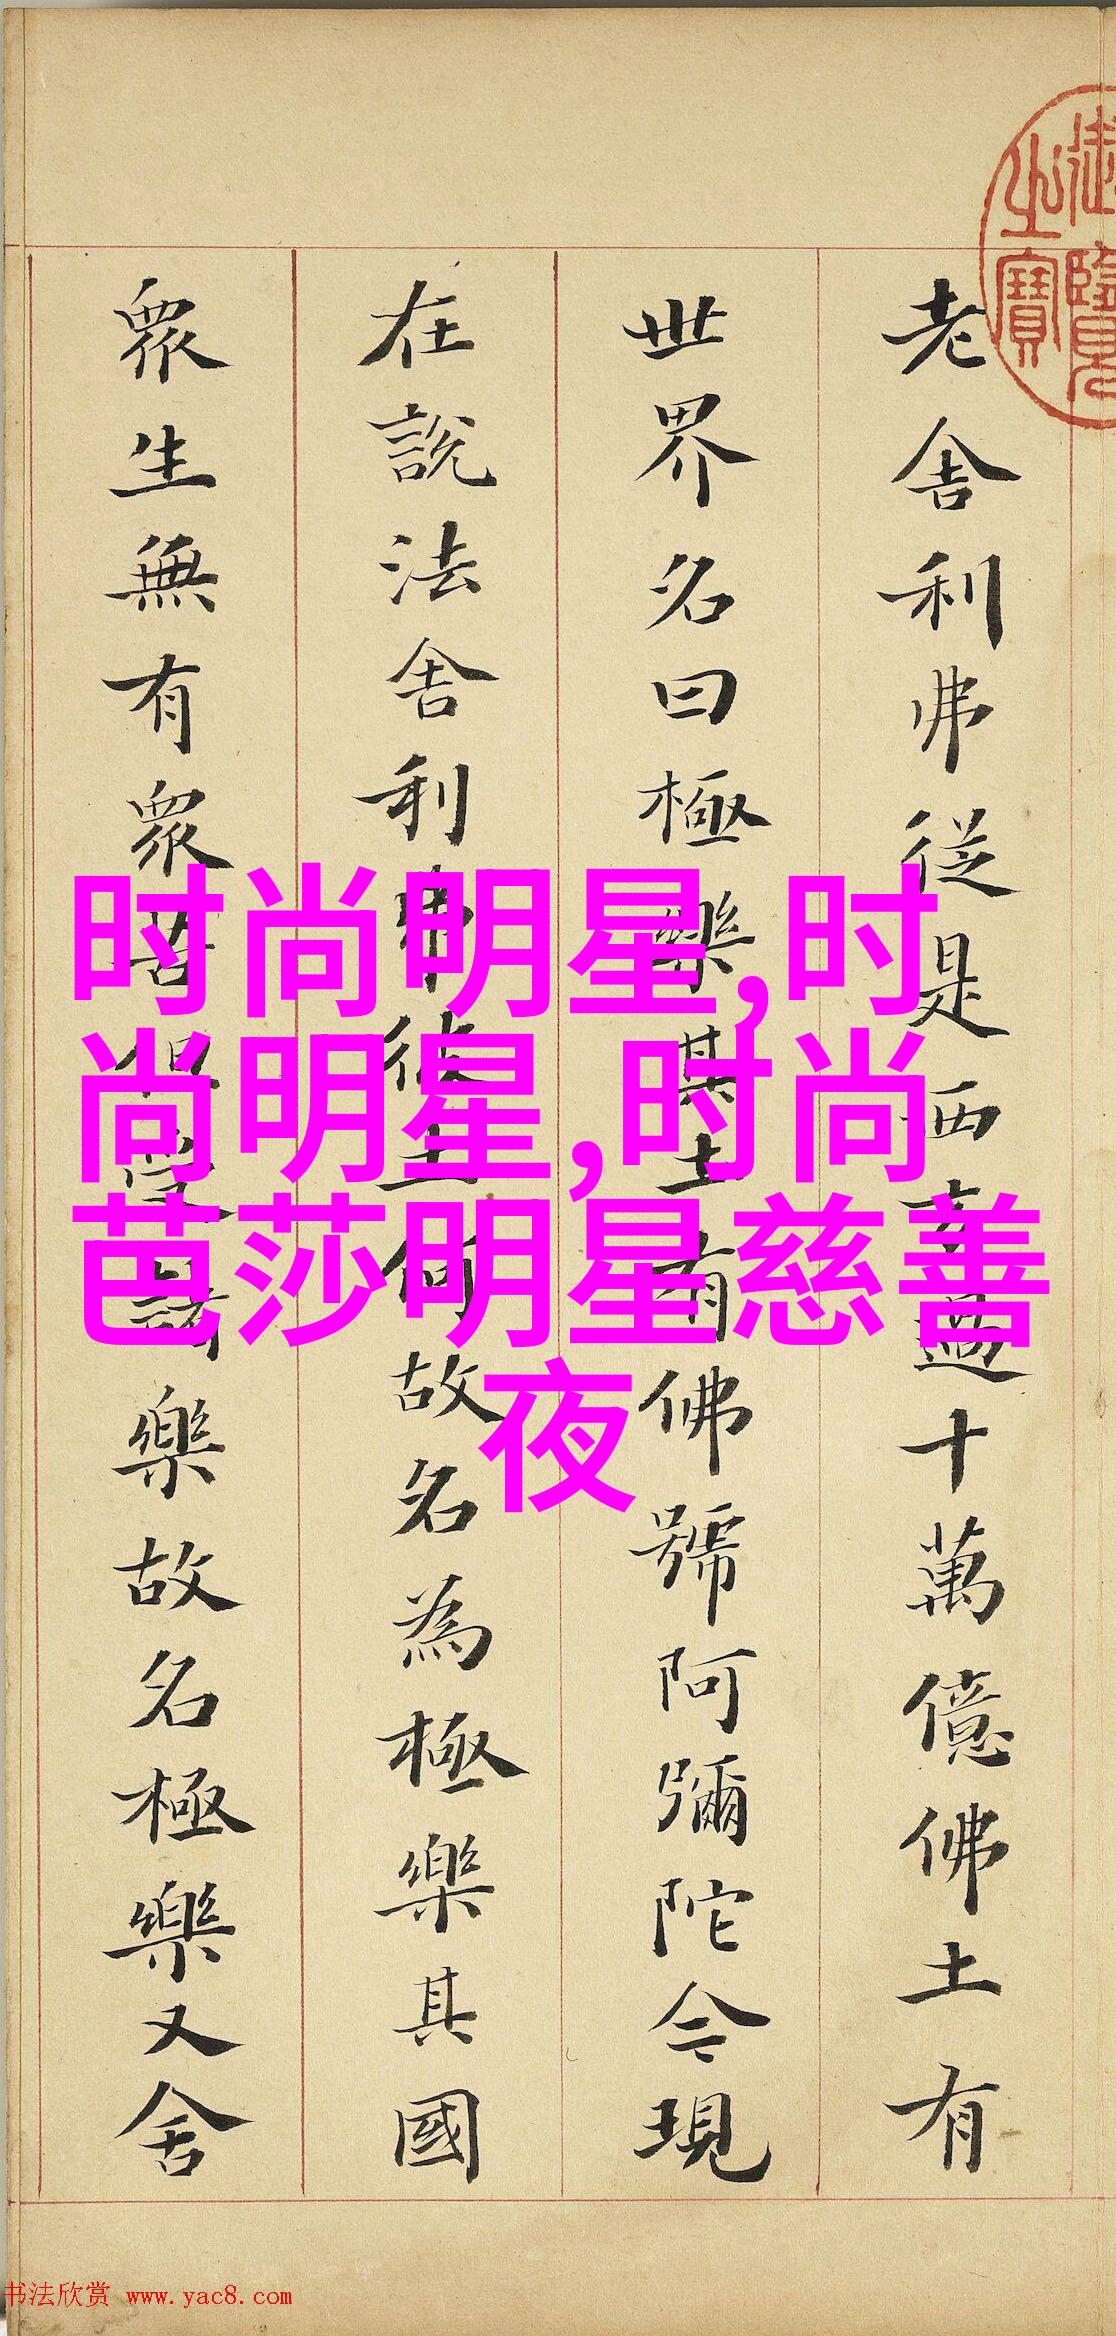 御覽之寶
老舍利弗從是西方過十萬億佛土有
世界名曰極樂其土有佛號阿彌陀今現
在說法舍利弗彼土何故名為極樂其國
眾生無有眾苦但受諸樂故名極樂又舍
时尚明星,时
尚明星,时尚
芭莎明星慈善
夜
书法欣赏 www.yac8.com